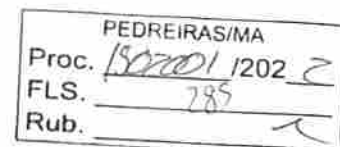 PEDREIRAS/MA
Proc. 1507001 /202 2
FLS. 285
Rub.